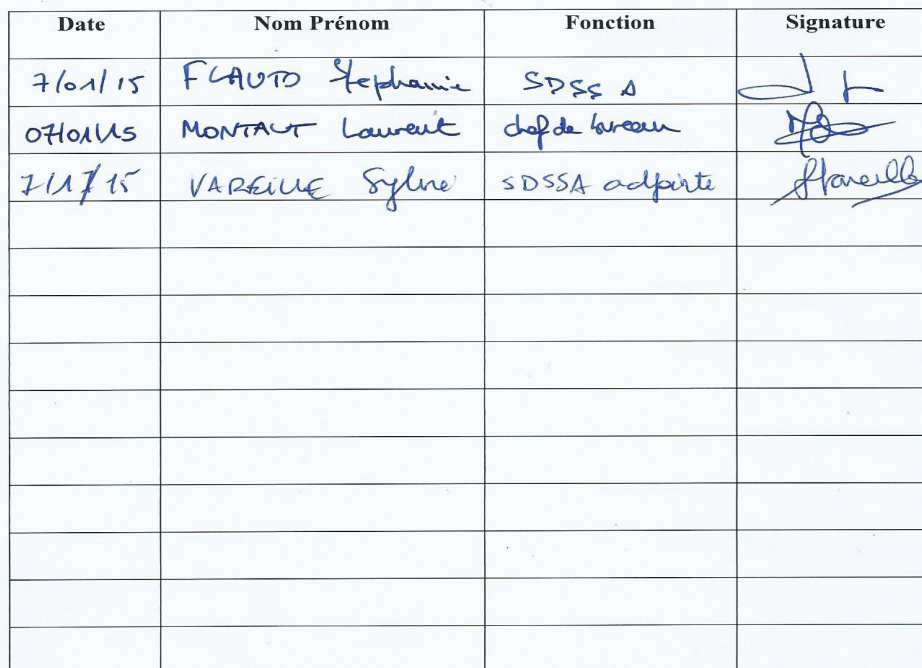 Date Nom Prénom Fonction Signature
7/01/15 FLAUTO Stephanie SDSS A
07/01/15 MONTAUT Laurent chef de bureau
7/1/15 VAREILLE Sylvie SDSSA adjointe Vareille